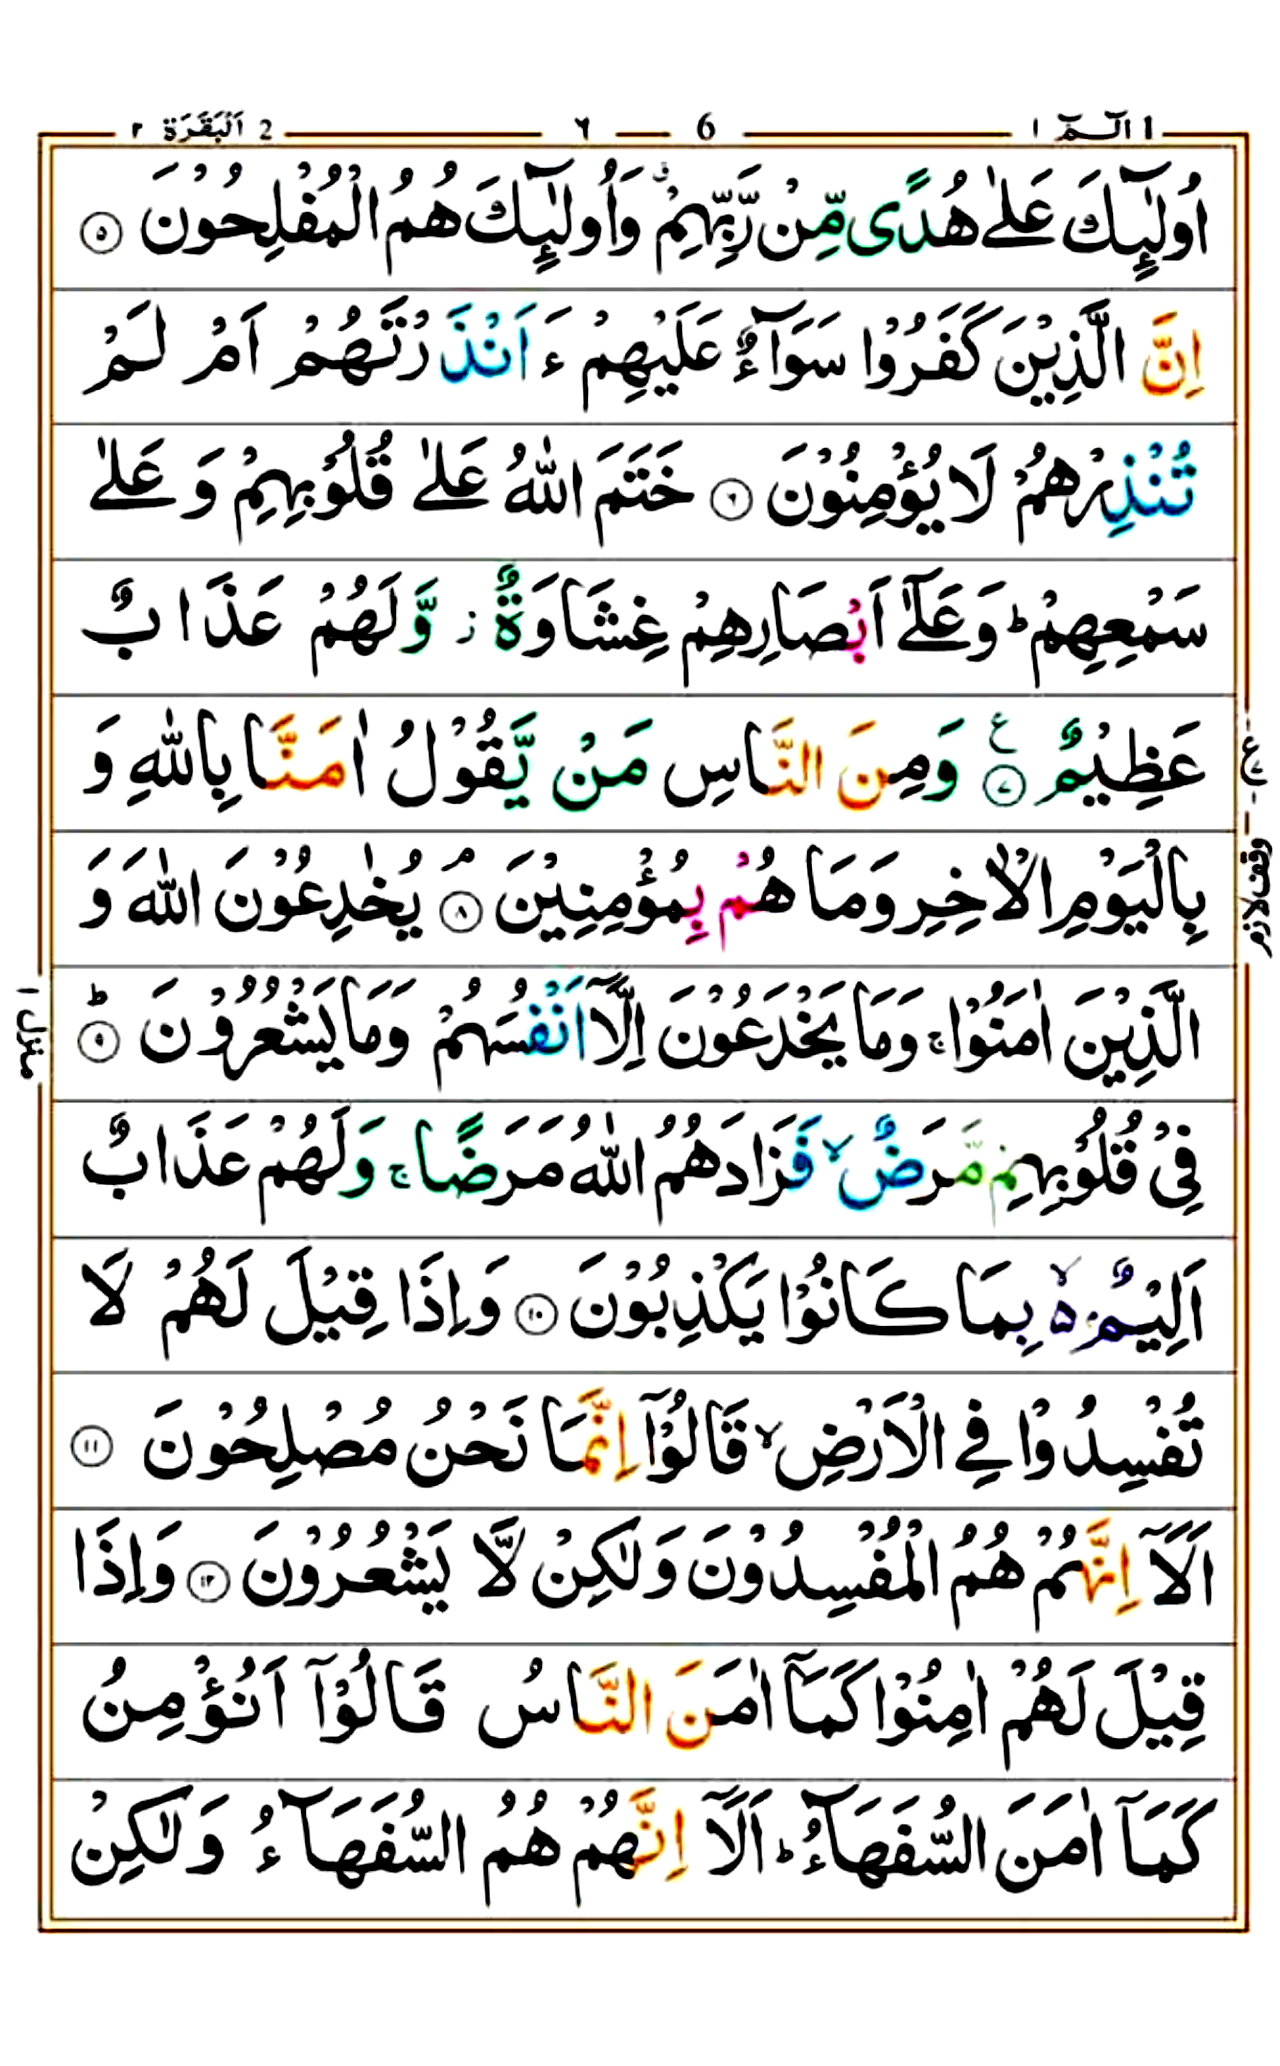 1 الٓـمّٓ ١ 6 ٦ 2 اَلْبَقَرَة ٢
اُولٰٓئِكَ عَلٰى هُدًى مِّنْ رَّبِّهِمْ ۙ وَاُولٰٓئِكَ هُمُ الْمُفْلِحُوْنَ ۝٥
اِنَّ الَّذِيْنَ كَفَرُوْا سَوَآءٌ عَلَيْهِمْ ءَاَنْذَرْتَهُمْ اَمْ لَمْ
تُنْذِرْهُمْ لَا يُؤْمِنُوْنَ ۝٦ خَتَمَ اللّٰهُ عَلٰى قُلُوْبِهِمْ وَ عَلٰى
سَمْعِهِمْ ؕ وَعَلٰٓى اَبْصَارِهِمْ غِشَاوَةٌ ز وَّلَهُمْ عَذَابٌ
عَظِيْمٌ ۝٧ ع وَمِنَ النَّاسِ مَنْ يَّقُوْلُ اٰمَنَّا بِاللّٰهِ وَ
ع
بِالْيَوْمِ الْاٰخِرِ وَمَا هُمْ بِمُؤْمِنِيْنَ ۝٨ۘ يُخٰدِعُوْنَ اللّٰهَ وَ
وقف لازم
الَّذِيْنَ اٰمَنُوْا ۚ وَمَا يَخْدَعُوْنَ اِلَّاۤ اَنْفُسَهُمْ وَمَا يَشْعُرُوْنَ ۝٩ؕ
منزل ١
فِيْ قُلُوْبِهِمْ مَّرَضٌ ۙ فَزَادَهُمُ اللّٰهُ مَرَضًا ۚ وَلَهُمْ عَذَابٌ
اَلِيْمٌ ۙ۬ۥ بِمَا كَانُوْا يَكْذِبُوْنَ ۝١٠ وَاِذَا قِيْلَ لَهُمْ لَا
تُفْسِدُوْا فِي الْاَرْضِ ۙ قَالُوْۤا اِنَّمَا نَحْنُ مُصْلِحُوْنَ ۝١١
اَلَاۤ اِنَّهُمْ هُمُ الْمُفْسِدُوْنَ وَلٰكِنْ لَّا يَشْعُرُوْنَ ۝١٢ وَاِذَا
قِيْلَ لَهُمْ اٰمِنُوْا كَمَاۤ اٰمَنَ النَّاسُ قَالُوْۤا اَنُؤْمِنُ
كَمَاۤ اٰمَنَ السُّفَهَآءُ ؕ اَلَاۤ اِنَّهُمْ هُمُ السُّفَهَآءُ وَلٰكِنْ